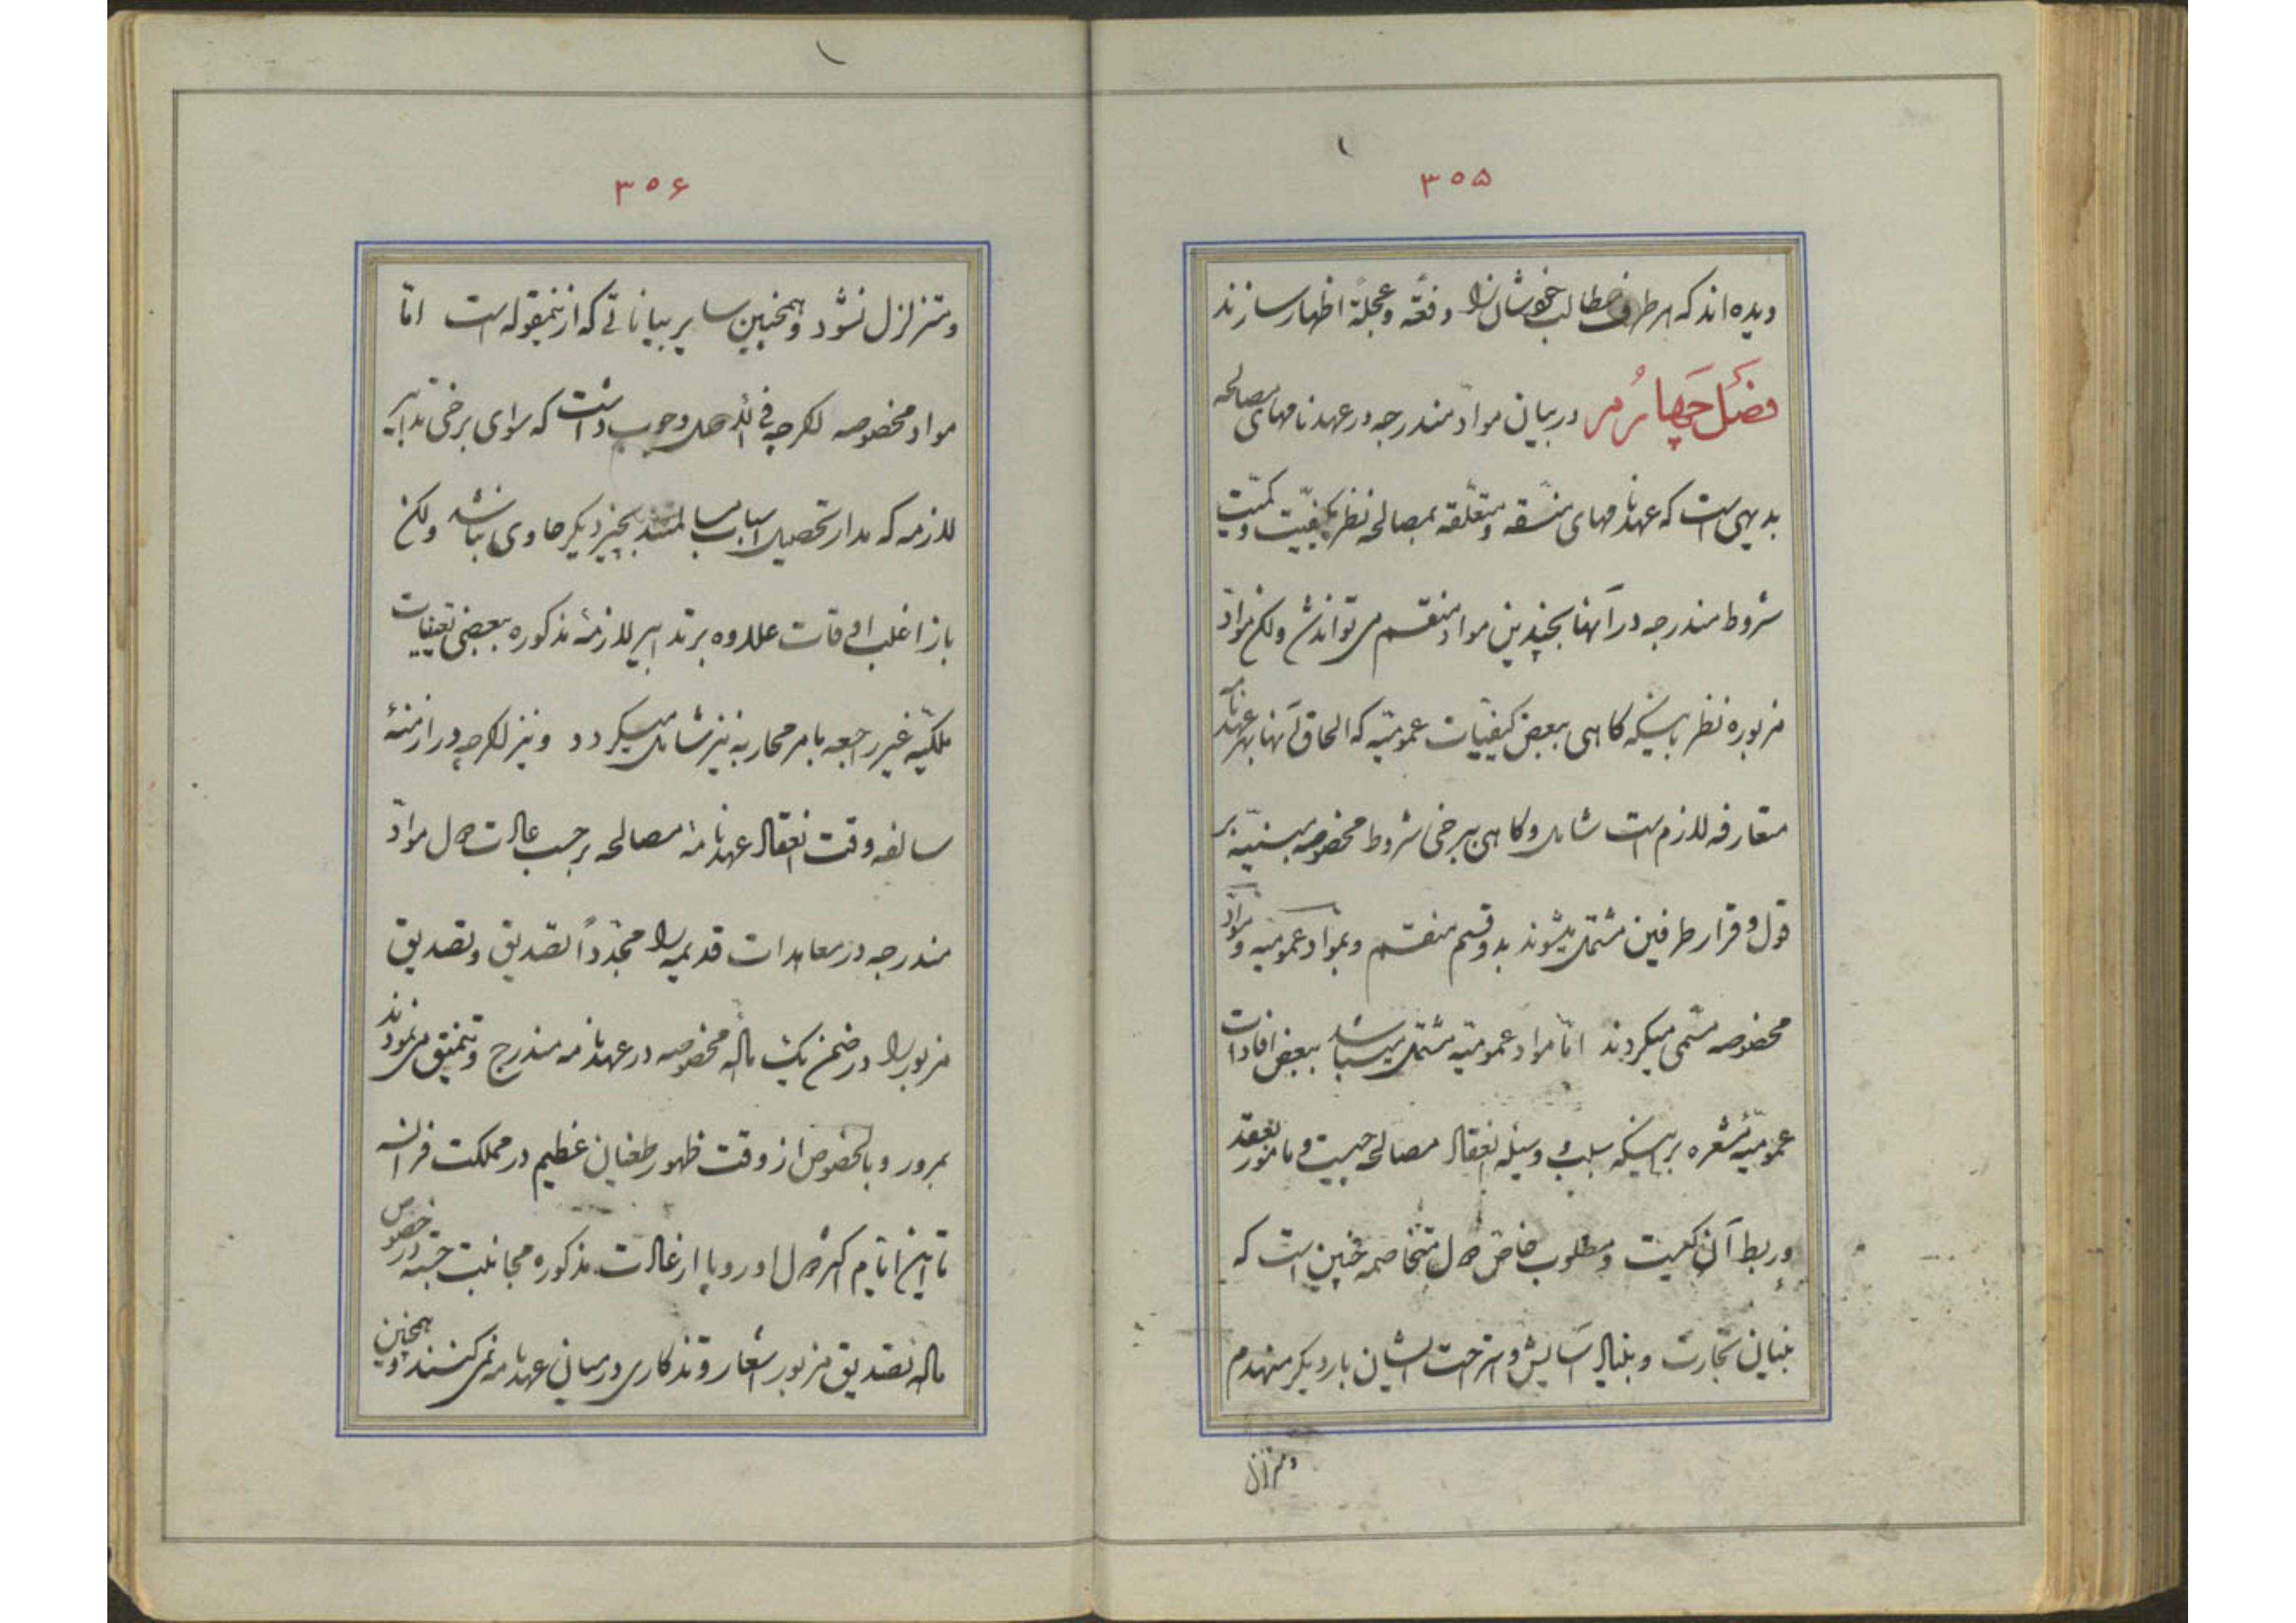 ۳۵۵
دیده‌اند که هر طرف مطالب خودشان را دفعةً و عجلةً اظهار سازند
فصل چهارم در بیان موادّ مندرجه در عهدنامهای مصالحه
بدیهی است که عهدنامهای منسقه و متعلّقه بمصالحه نظر بکیفیّت و کمیّت
شروط مندرجه در آنها بچندین مواد منقسم می‌تواند شد ولکن موادّ
مزبوره نظر باینکه گاهی ببعض کیفیّات عمومیّه که الحاق آنها بهر عهدنامه
متعارفه لازم است شامل و گاهی ببرخی شروط مخصوصه مبنیّه بر
قول و قرار طرفین مشتمل میشوند بدو قسم منقسم و بمواد عمومیه و موادّ
مخصوصه مسمّی میگردند امّا مواد عمومیّه مشتمل میباشد ببعض افادات
عمومیّهٔ مشعره بر اینکه سبب و وسیله انعقاد مصالحه چیست و مامور بعقد
و ربط آن کیست و مطلوب خاصّ دول متخاصمه چنین است که
بنیان تجارت و بنیاد آسایش و استراحت ایشان بار دیگر منهدم
و متزلزل
۳۵۶
و متزلزل نشود و همچنین سایر بیاناتی که ازینمقوله است امّا
مواد مخصوصه اگرچه فی الاصل وجوب داشت که سوای برخی تدابیر
لازمه که مدار تحصیل اسباب مسالمتند بچیز دیگر حاوی نباشد ولکن
باز اغلب اوقات علاوه بر تدابیر لازمهٔ مذکوره ببعضی کیفیات
ملکیّه غیر راجعه بامر محاربه نیز شامل میگردد و نیز اگرچه در ازمنهٔ
سالفه وقت انعقاد عهدنامهٔ مصالحه بر حسب عادت دول موادّ
مندرجه در معاهدات قدیمه را مجدّداً تصدیق و تصدیق
مزبور را در ضمن یک مادّه مخصوصه در عهدنامه مندرج و تنمیق می‌نمودند
بمرور و بالخصوص از وقت ظهور طغیان عظیم در مملکت فرانسه
تا این ایّام اکثر دول اوروپا از عادت مذکوره مجانبت جسته در خصوص
مادّه تصدیق مزبور اشعار و تذکاری در میان عهدنامه نمی‌کنند و همچنین